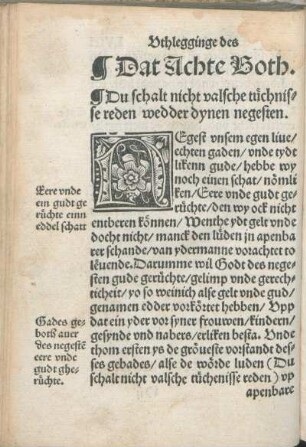 Vthlegginge des
¶ Dat Achte Both.
¶ Du schalt nicht valsche tüchnis-
se reden wedder dynen negesten.
NEgest vnsem egen liue/
echten gaden/ vnde tydt
likem gude/ hebbe wy
noch einen schat/ nömli
ken/ Eere vnde gudt ge
rüchte/ den wy ock nicht
entberen können/ Wenthe ydt gelt vnde
docht nicht/ manck den lüden jn apenba
rer schande/ van ydermanne vorachtet to
leuende. Darumme wil Godt des neges-
sten gude gerüchte/ gelimp vnde grech-
ticheit/ yo so weinich alse gelt vnde gud/
genamen edder vorkörtet hebben/ Vpp
dat ein yder vor syner frouwen/ kindern/
gesynde vnd nabers/ erliken besta. Vnde
thom ersten ys de gröueste vorstandt des-
ses gebades/ alse de wörde luden (Du
schalt nicht valsche tüchenisse reden) vp
apenbare
Eere vnde
ein gudt ge
rüchte einn
eddel schatt
Gades ge-
both auer
des negestē
eere vnde
gudt ghe-
rüchte.